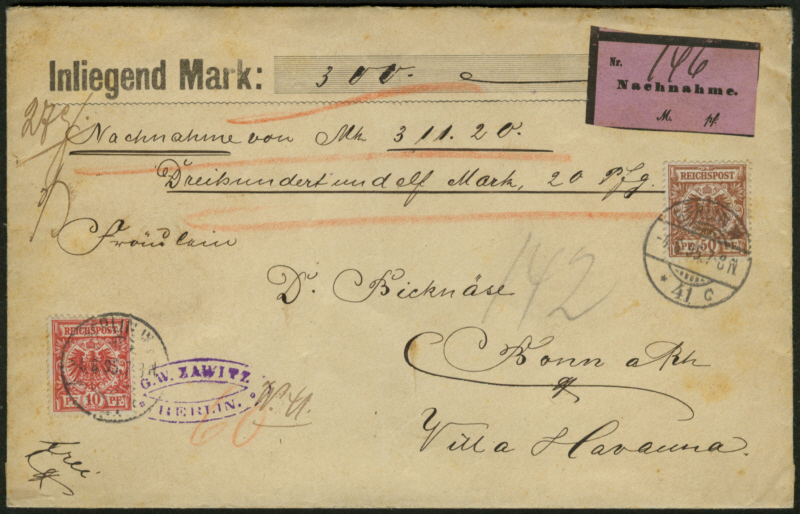 Inliegend Mark: 300.
Nr. 146
Nachnahme.
M. pf.
27 g
Nachnahme von Mk 311.20.
Dreihundert und elf Mark, 20 Pfg.
REICHSPOST
PF 50 PF
41 c
Fräulein
142
D. Bicknäse
Bonn a Rh
REICHSPOST
PF 10 PF
G.W. ZAWITZ
BERLIN.
60
Villa Havanna.
Frei